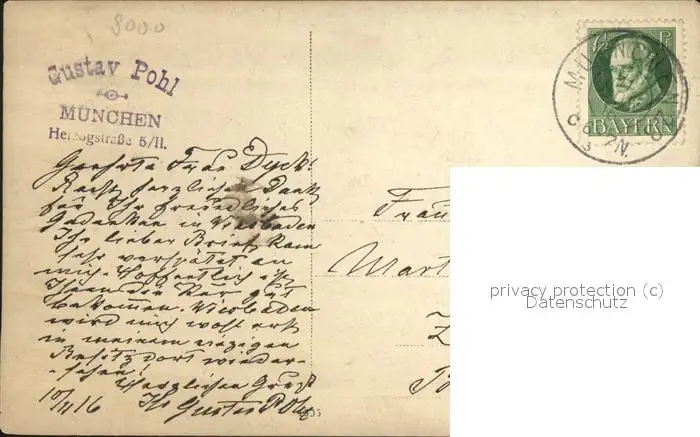 9000
Gustav Pohl
MÜNCHEN
Herzogstraße 5/II.
7½ Pf
BAYERN
MÜNCHEN
Geehrte Frau Dyck!
Recht herzlichen Dank
für Ihr freundliches
Gedenken in Wiesbaden
Ihr lieber Brief kam
sehr verspätet an
mich. Hoffentlich ist
Ihnen die Kur gut
bekommen. Wiesbaden
wird mich wohl erst
in meinem
wieder-
sehen!
Herzlichen Gruß
Ihr Gustav Pohl
16
Frau
Mart
privacy protection (c)
Datenschutz